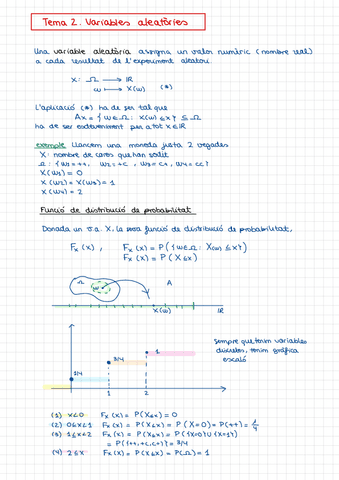 Tema 2. Variables aleatòries
Una variable aleatòria assigna un valor numèric (nombre real)
a cada resultat de l'experiment aleatori.
X: Ω → IR
ω ↦ X(ω) (*)
L'aplicació (*) ha de ser tal que
Ax = {ω∈Ω: X(ω) ≤ x} ⊆ Ω
ha de ser esdeveniment per a tot x∈IR
exemple Llancem una moneda justa 2 vegades
X: nombre de cares que han sortit
Ω: {ω1=++, ω2=+c, ω3=c+, ω4=cc}
X(ω1) = 0
X(ω2) = X(ω3) = 1
X(ω4) = 2
Funció de distribució de probabilitat
Donada un v.a. X, la seva funció de distribució de probabilitat,
Fx(x), Fx(x) = P({ω∈Ω: X(ω) ≤ x})
Fx(x) = P(X≤x)
Ω ω A
X(ω) IR
sempre que tenim variables
discretes, tenim gràfica
escaló
1
3/4
1/4
1 2
(1) x<0 Fx(x) = P(X≤x) = 0
(2) 0≤x<1 Fx(x) = P(X≤x) = P(X=0) = P(++) = 1/4
(3) 1≤x<2 Fx(x) = P(X≤x) = P({X=0}∪{X=1})
= P({++,+c,c+}) = 3/4
(4) 2≤x Fx(x) = P(X≤x) = P(Ω) = 1